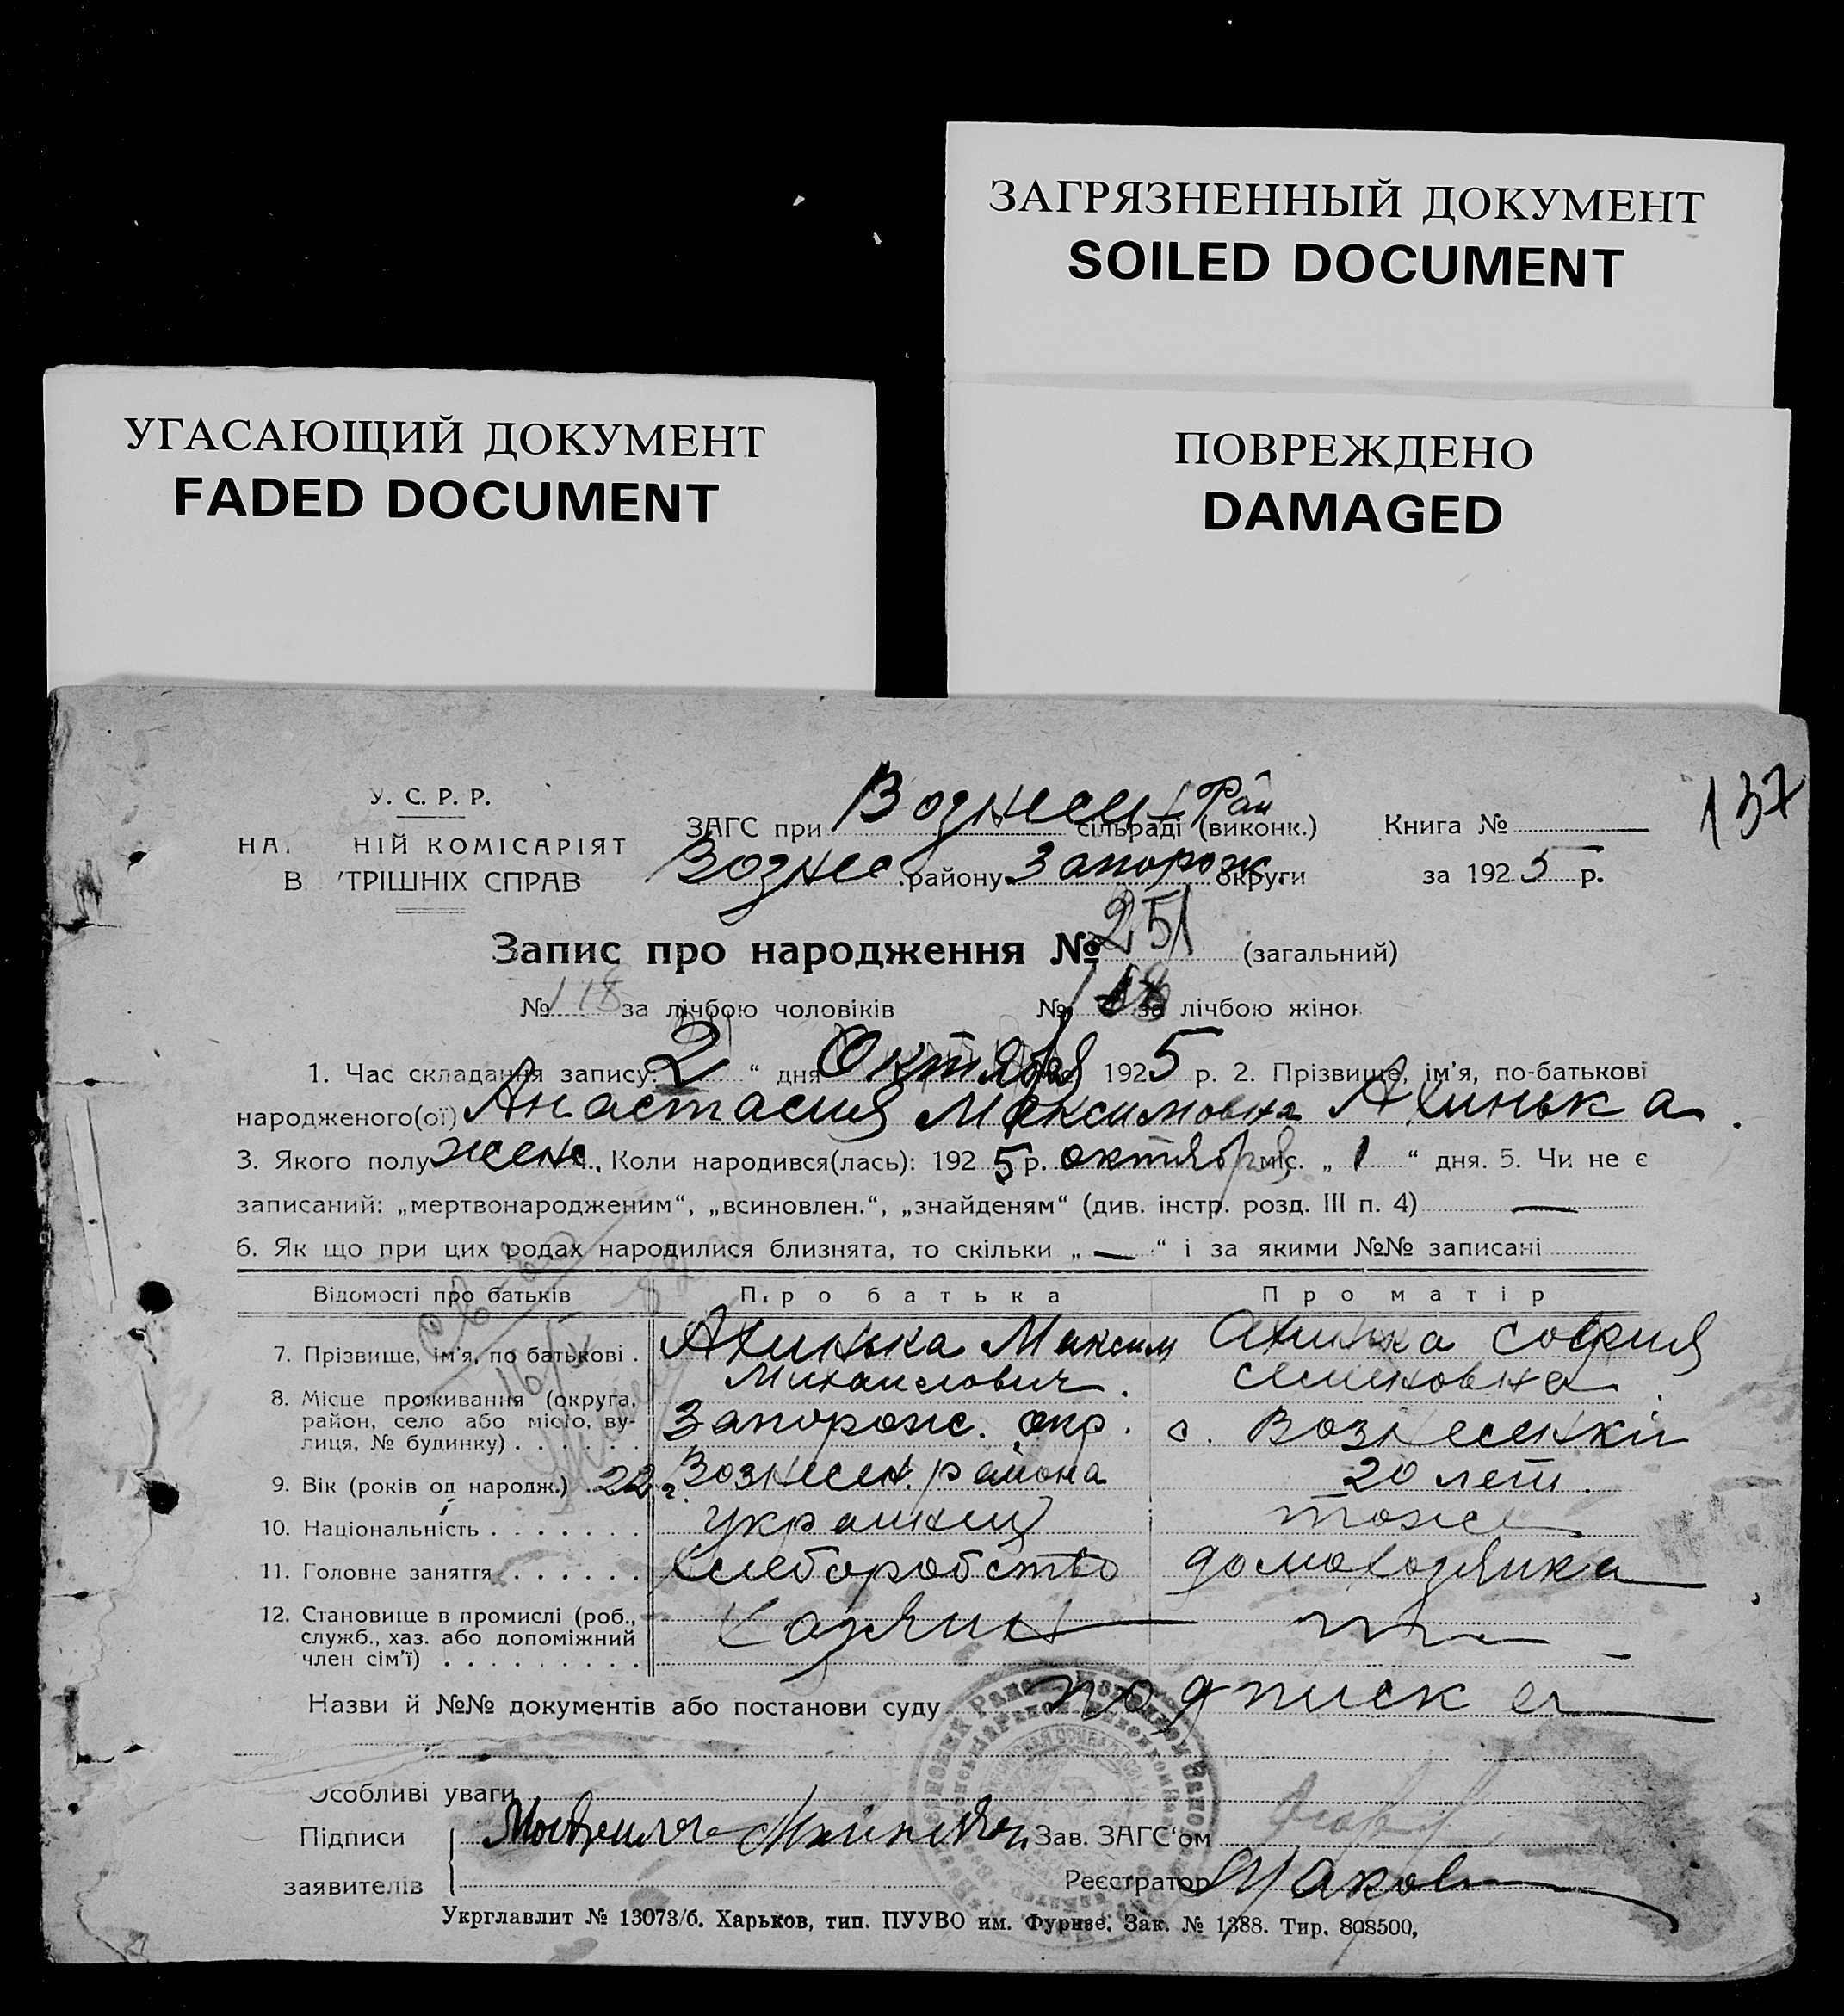 ЗАГРЯЗНЕННЫЙ ДОКУМЕНТ
SOILED DOCUMENT
УГАСАЮЩИЙ ДОКУМЕНТ
FADED DOCUMENT
ПОВРЕЖДЕНО
DAMAGED
137
У. С. Р. Р.
НА. НІЙ КОМІСАРІЯТ
В ТРІШНІХ СПРАВ
ЗАГС при Вознесен Рай сільраді (виконк.) Книга №
Вознес. району Запорож. округи за 1925 р.
Запис про народження № 251 (загальний)
№ 118 за лічбою чоловіків № за лічбою жінок
1. Час складання запису: 2 " дня Октября 1925 р. 2. Прізвище, ім'я, по-батькові
народженого(ої) Анастасия Максимовна Ахинька.
3. Якого полу женс. Коли народився(лась): 1925 р. октября міс. „ 1 " дня. 5. Чи не є
записаний: „мертвонародженим", „всиновлен.", „знайденям" (див. інстр. розд. III п. 4) —
6. Як що при цих родах народилися близнята, то скільки „ — " і за якими №№ записані
Відомості про батьків Про батька Про матір
7. Прізвище, ім'я, по батькові . Ахинька Максим Михаилович. Ахинька София Семеновна.
8. Місце проживання (округа, район, село або місто, вулиця, № будинку) . . . . . . Запорожс. окр. с. Вознесенки
Вознесен. района
9. Вік (років од народж.) . 22 г. 20 лет.
10. Національність . . . . . . . Украинец тоже
11. Головне заняття . . . . . . Хлеборобство домохозяйка
12. Становище в промислі (роб., служб., хаз. або допоміжний член сім'ї) . . . . . . . . . Хозяин
Назви й №№ документів або постанови суду подписка
Особливі уваги
Підписи
Зав. ЗАГС'ом
заявителів
Реєстратор
Укрглавлит № 13073/б. Харьков, тип. ПУУВО им. Фрунзе. Зак. № 1388. Тир. 808500,